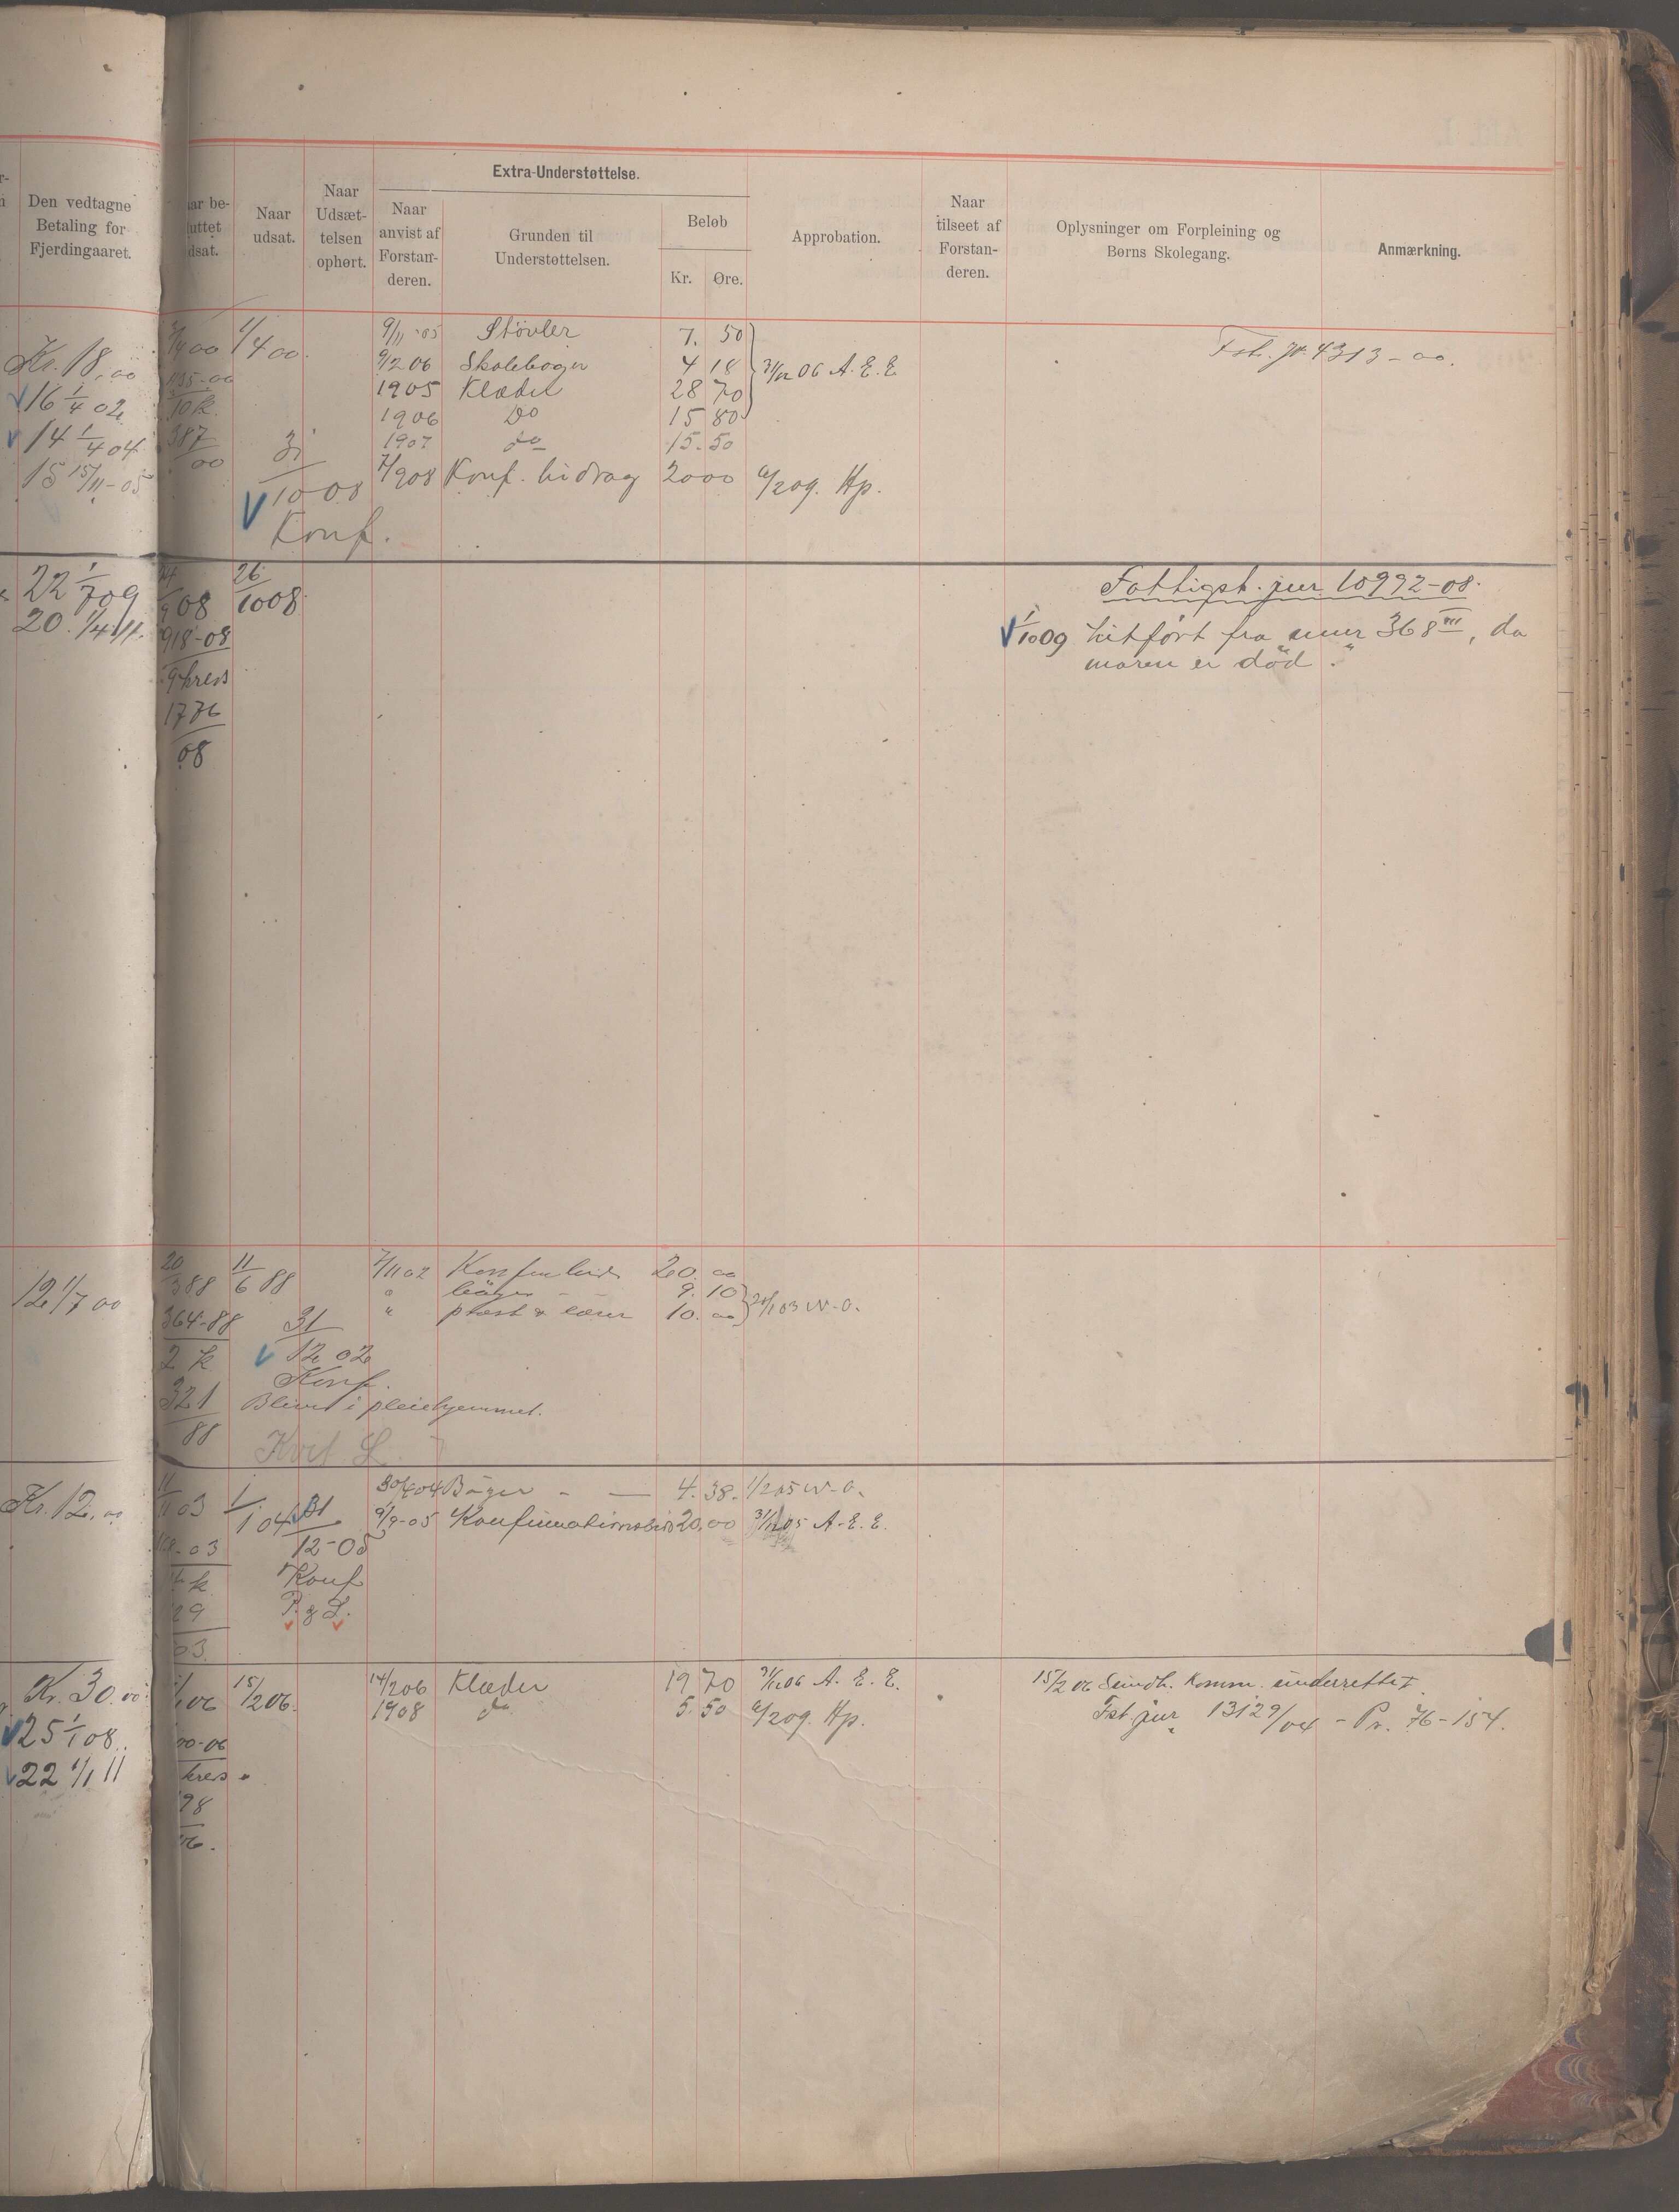 Den vedtagne
Betaling for
Fjerdingaaret.
Naar
udsat.
Naar
Udsæt-
telsen
ophørt.
Extra-Understøttelse.
Naar
anvist af
Forstan-
deren.
Grunden til
Understøttelsen.
Beløb
Kr. Øre.
Approbation.
Naar
tilseet af
Forstan-
deren.
Oplysninger om Forpleining og
Børns Skolegang.
Anmærkning.
Kr. 18,00
16 1/4 02
14 1/4 04
15 15/11-05
1/4 00
387
00
31
10 08
Konf.
9/11-05 Støvler 7. 50
9/2 06 Skolebøger 4 18 31/12 06 A. E. E
1905 Klæder 28 70
1906 Do 15 80
1907 do 15. 50
7/9 08 Konf. bidrag 20 00 6/2 09. Hp.
Fst. Jr. 4313-00.
22 1/7 09
20. 1/4 11.
08
918-08
1776
08
26
10 08
Fattigst. jur 10992-08.
1/10 09 hitført fra nmr 368 III, da
moren er död.
12 1/7 00
20
3 88
364-88
2 k
321
88
11
6 88
31
12 02
Konf.
Bliver i pleiehjemmet.
Kvit L
7/11 02 20. 00
" bøger - 9. 10
" præst & lærer 10. 00 03 W-O.
Kr. 12,00
11 03
29
03
1/1 04
31
12-05
Konf
P. & L.
30/4 04 Bøger - 4. 38. 1/2 05 W-O.
9/9-05 Konfirmationsbid 20,00 31/12 05 A-E. E.
Kr. 30.00
25 1/1 08.
22 1/1 11
15/2 06.
14/2 06 Klæder 19 70 31/12 06 A. E. E.
1908 do 5. 50 6/2 09. Hp.
15/2 06 Sundh. Komm. underrettet
Fst. jur 13129/04 - Pr. 76-154.